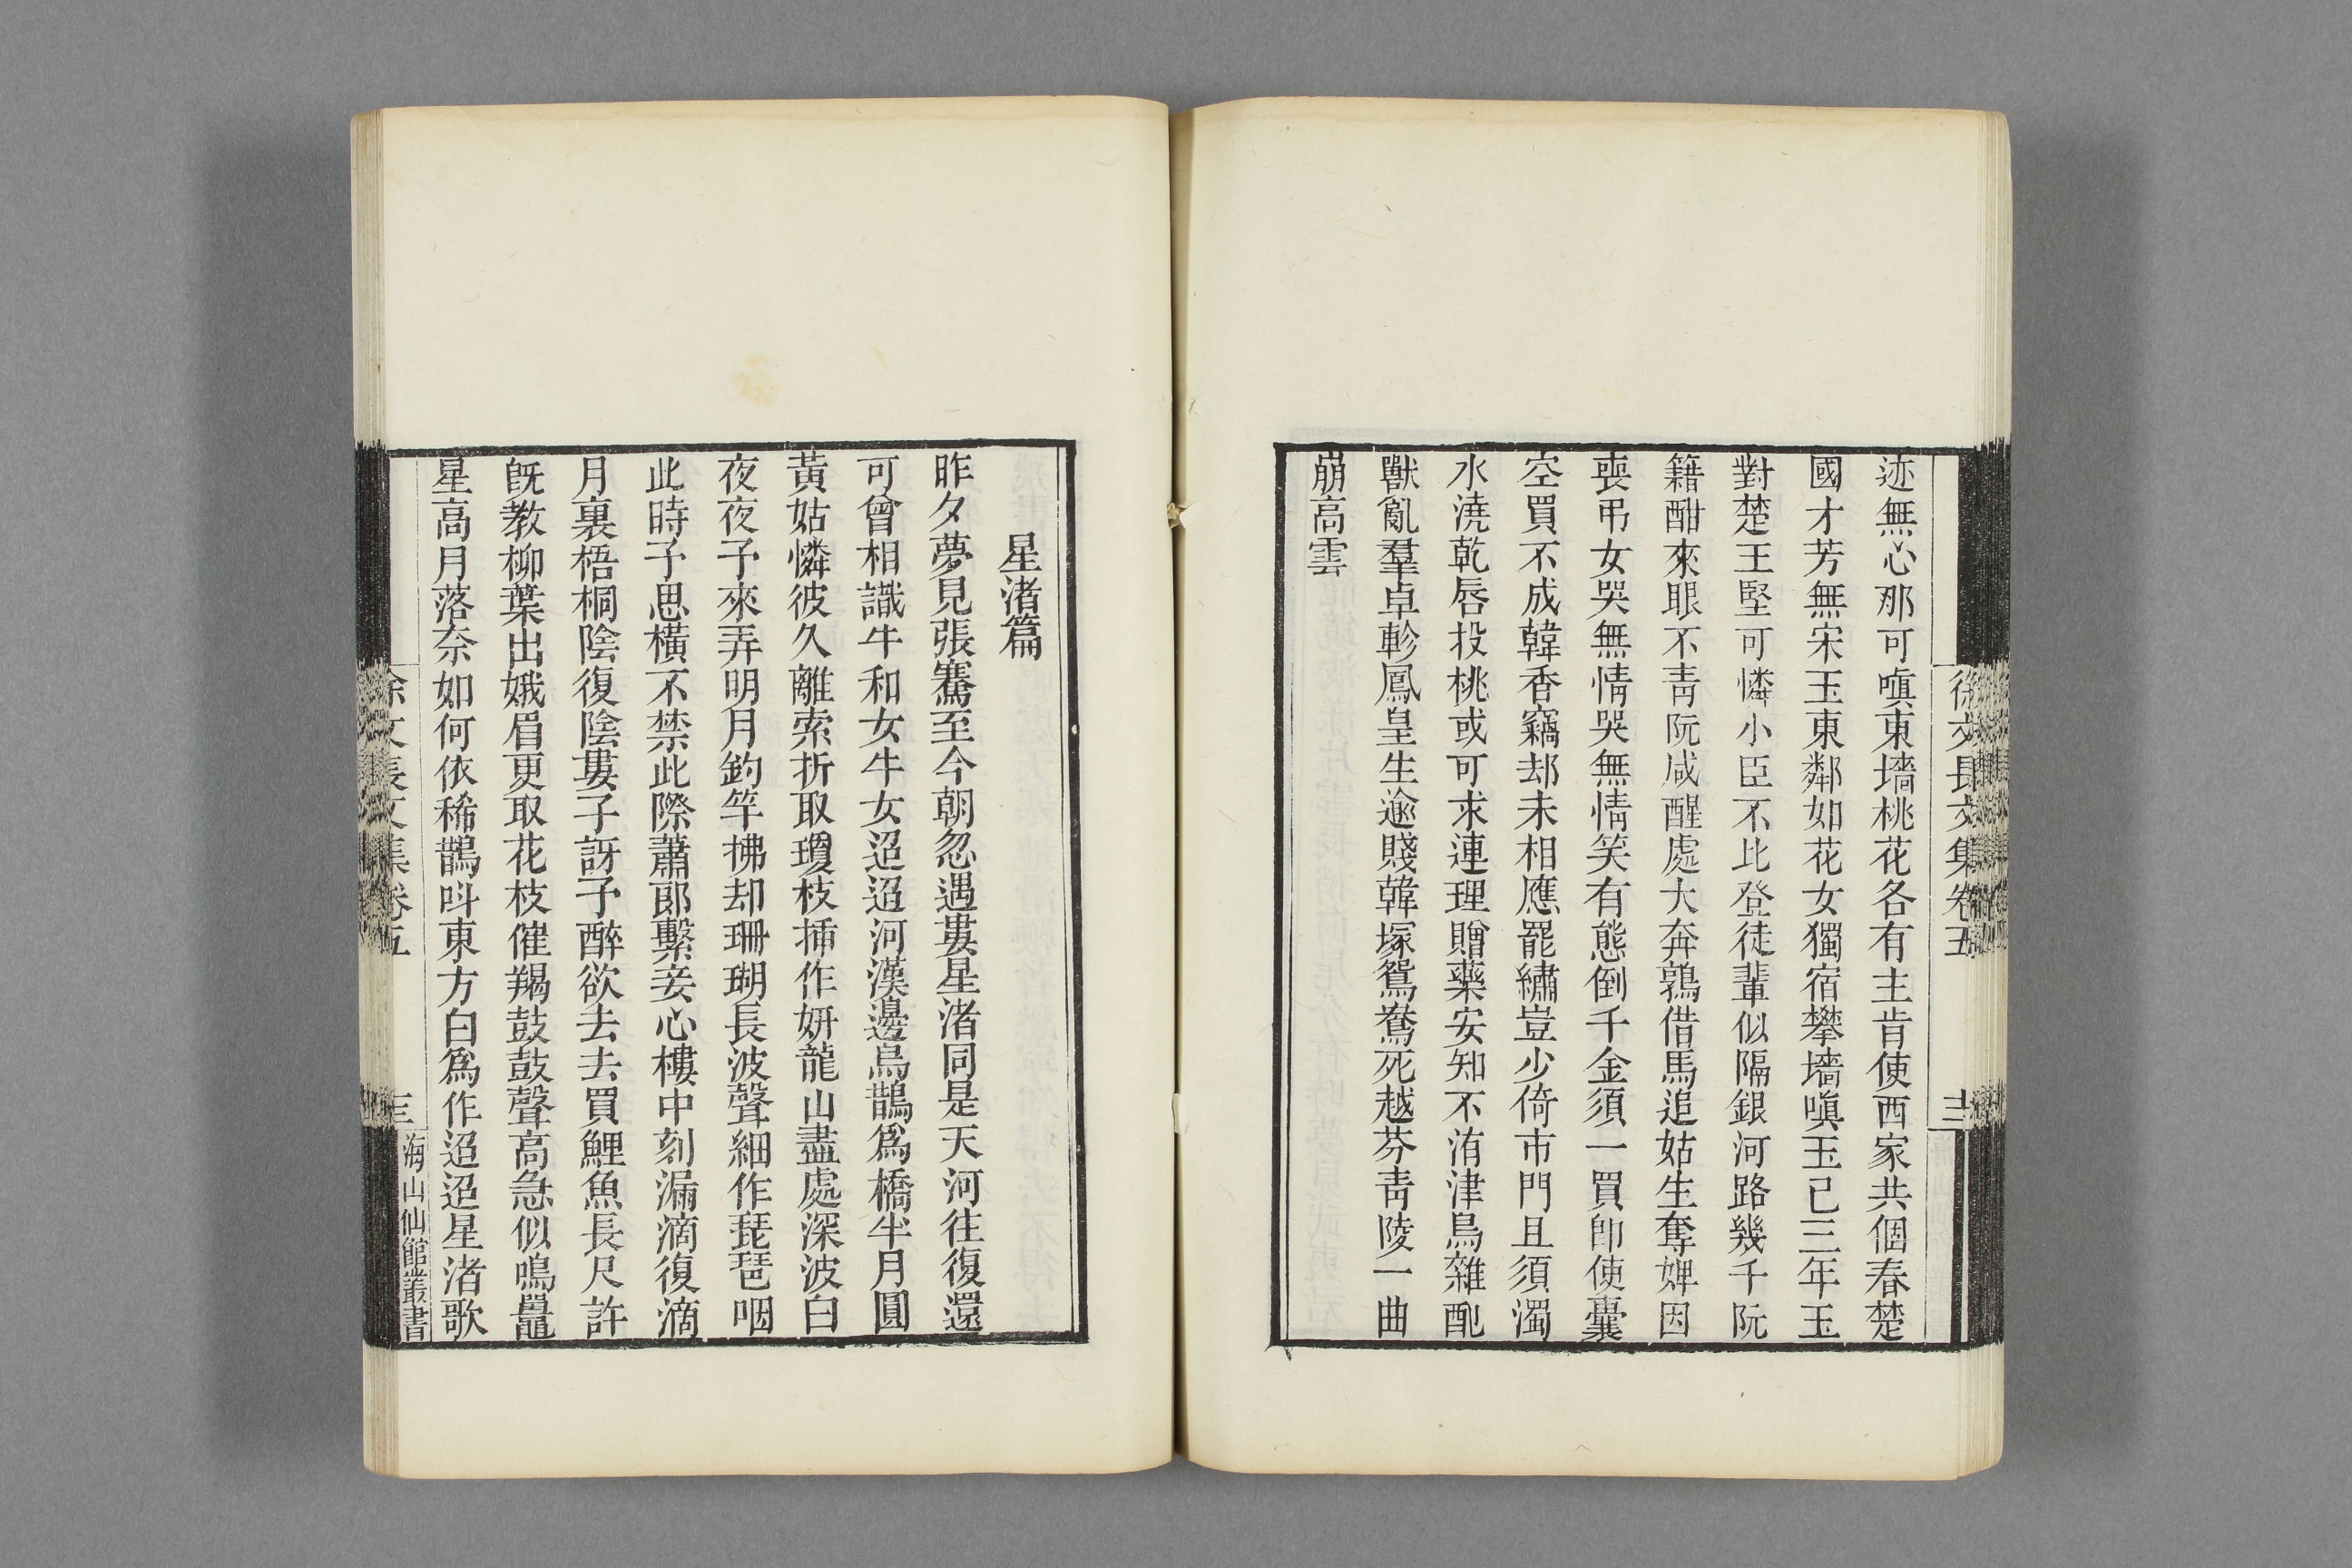 徐文長文集卷五
迹無心那可嗔東墻桃花各有主肯使西家共個春楚
國才芳無宋玉東鄰如花女獨宿攀墻嗔玉已三年玉
對楚王堅可憐小臣不比登徒輩似隔銀河路幾千阮
籍酣來眼不靑阮咸醒處大奔鶉借馬追姑生奪婢因
喪弔女哭無情哭無情笑有態倒千金須一買卽使囊
空買不成韓香竊却未相應罷繡豈少倚市門且須濁
水澆乾唇投桃或可求連理贈藥安知不洧津鳥雜配
獸亂羣卓軫鳳皇生遼賤韓塚鴛鴦死越芬靑陵一曲
崩高雲
星渚篇
昨夕夢見張騫至今朝忽遇婁星渚同是天河往復還
可曾相識牛和女牛女迢迢河漢邊烏鵲爲橋半月圓
黃姑憐彼久離索折取瓊枝揷作妍龍山盡處深波白
夜夜子來弄明月釣竿拂却珊瑚長波聲細作琵琶咽
此時子思橫不禁此際蕭郎繫妾心樓中刻漏滴復滴
月裏梧桐陰復陰婁子訝予醉欲去去買鯉魚長尺許
旣教柳葉出娥眉更取花枝催羯鼓鼓聲高急似鳴鼉
星高月落奈如何依稀鵲呌東方白爲作迢迢星渚歌
徐文長文集卷五
海山仙館叢書